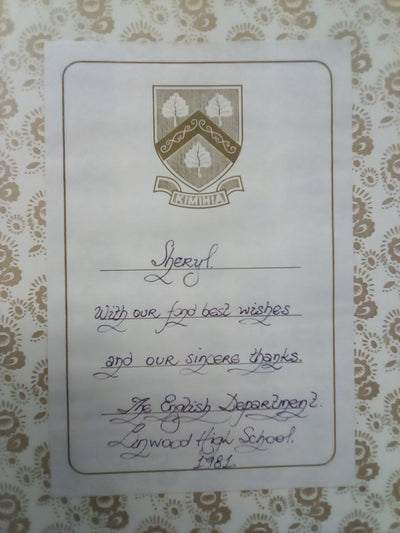 KIMIHIA
Sheryl.
With our fond best wishes
and our sincere thanks.
The English Department.
Linwood High School.
1981.